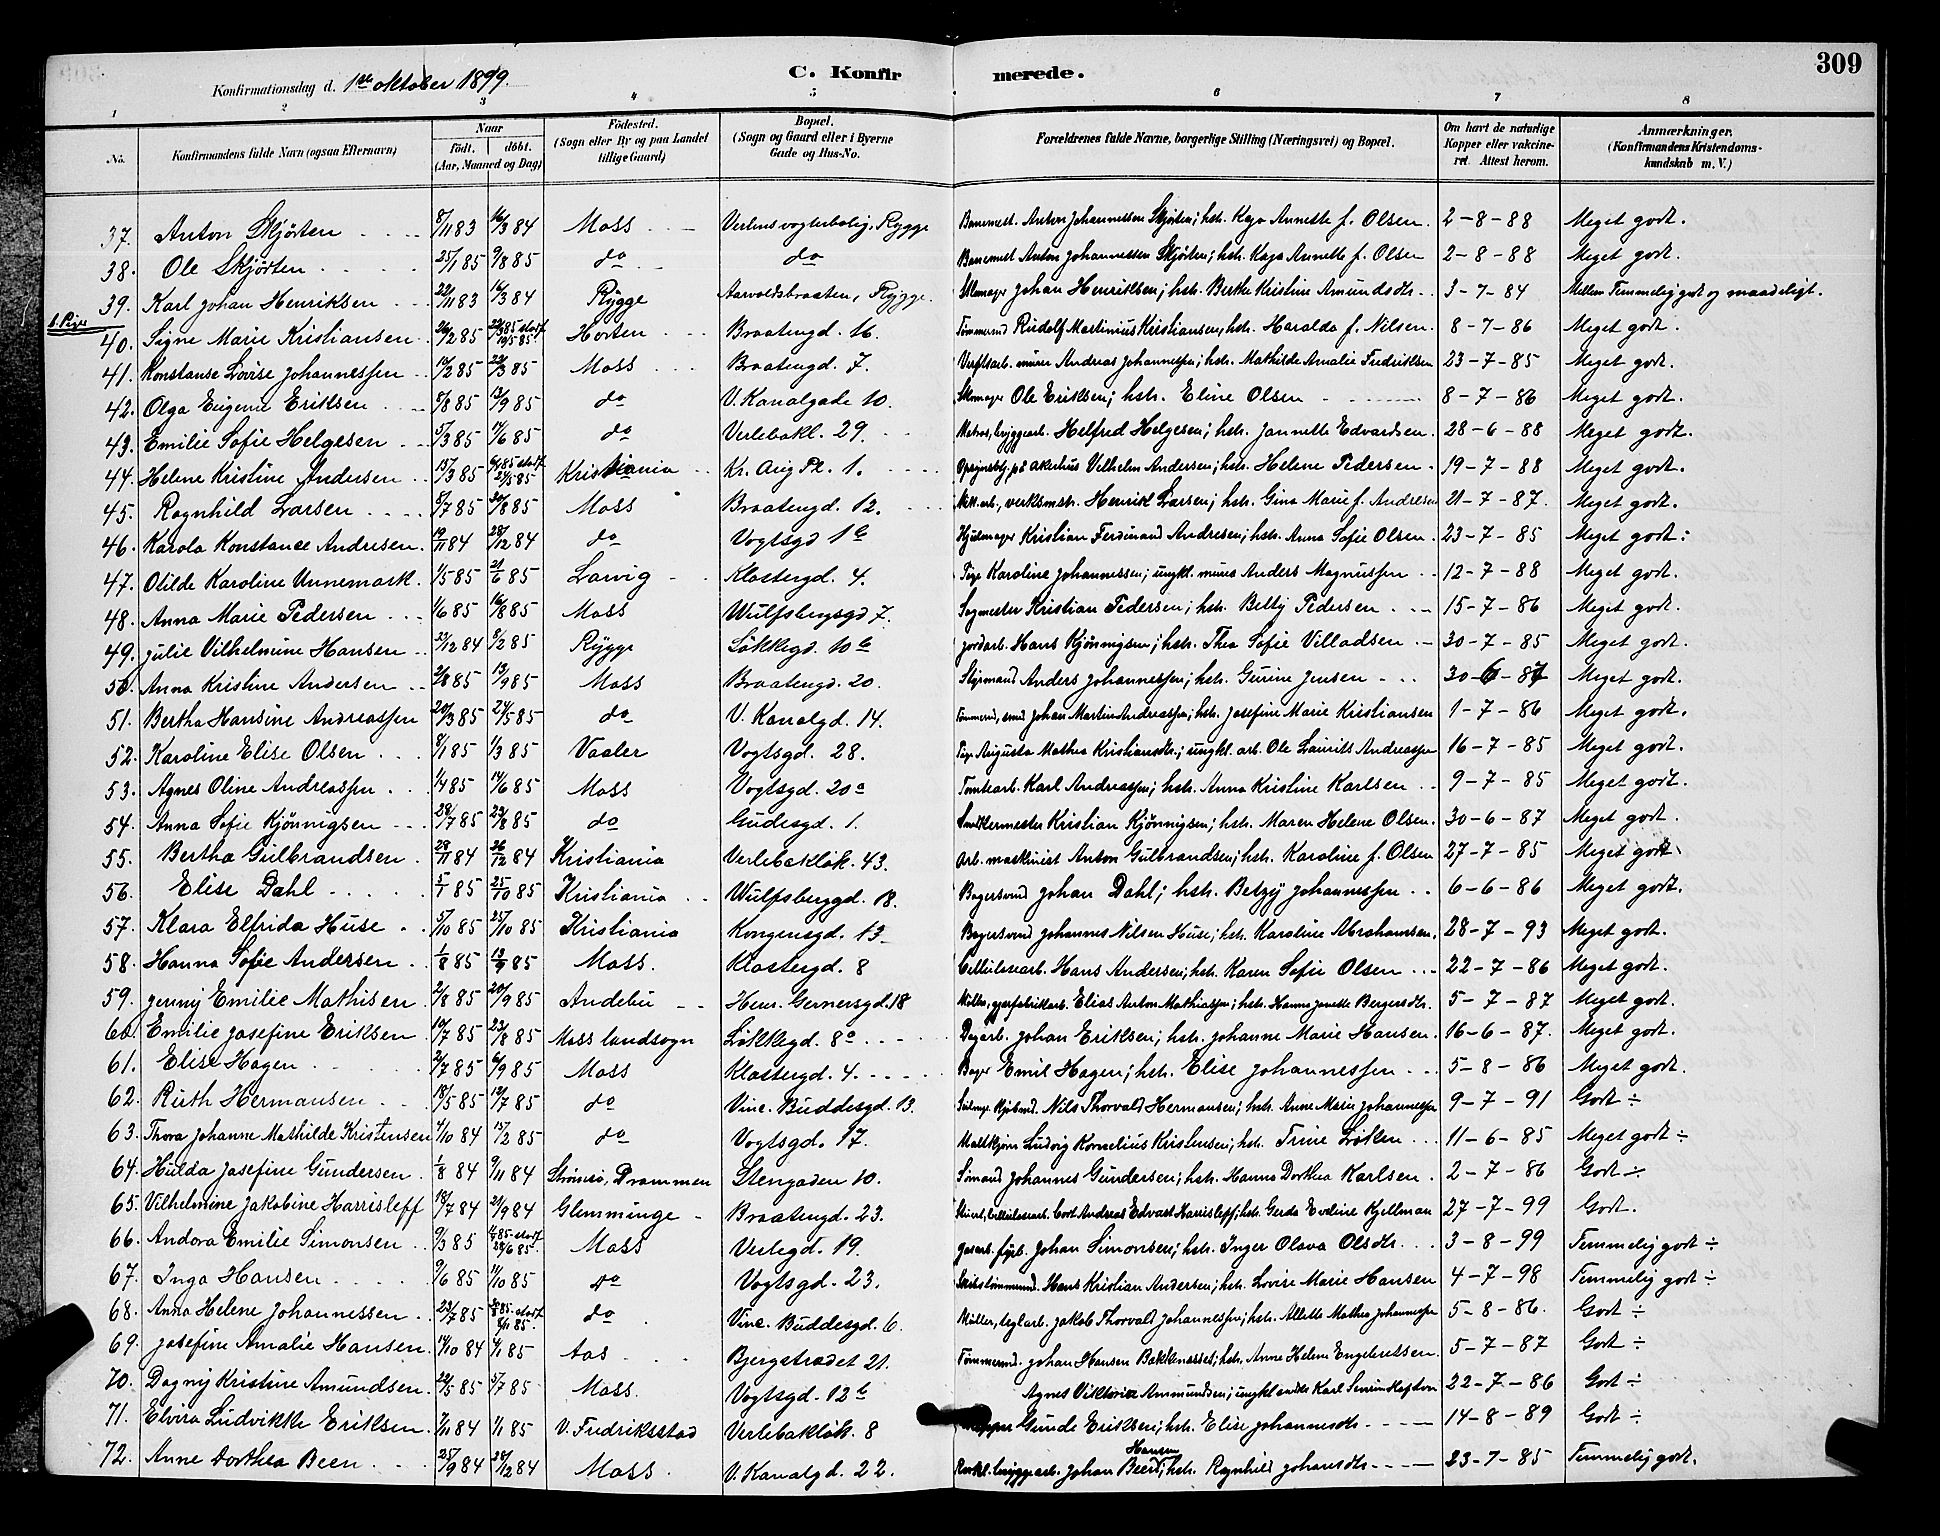 309
Konfirmationsdag d. 1ste oktober 1899. C. Konfirmerede.
1 2 3 4 5 6 7 8
No. Konfirmandens fulde Navn (ogsaa Efternavn) Naar Födt. döbt. (Aar, Maaned og Dag) Födested. (Sogn eller By og paa Landet tillige Gaard) Bopæl. (Sogn og Gaard eller i Byerne Gade og Hus-No. Forældrenes fulde Navne, borgerlige Stilling (Næringsvei) og Bopæl. Om havt de naturlige Kopper eller vakcineret. Attest herom. Anmærkninger. (Konfirmandens Kristendomskundskab m. V.)
37. Anton Skjörten 8/11 83 16/3 84 Moss Verlens vogterbolig, Rygge Banemest. Anton Johannessen Skjörten; hstr. Kaja Annette f. Olsen 2-8-88 Meget godt.
38. Ole Skjörten 25/1 85 9/8 85 do do Banemest Anton Johannessen Skjörten; hstr. Kaja Annette f. Olsen 2-8-88 Meget godt.
39. Karl Johan Henriksen 22/11 83 16/3 84 Rygge Aarvoldsbraaten, Rygge. Johan Henriksen; hstr. Berthe Kristine Amundsdtr. 3-7-84 Mellem Temmelig godt og maadeligt.
1. Pige
40. Signe Marie Kristiansen 26/2 85 22/3 85 stadf. 10/5 85 Horten Braatengd. 16. Tømmermd Rudolf Martinius Kristiansen, hstr. Haralda f. Nilsen 8-7-86 Meget godt.
41. Konstanse Lovise Johannessen 10/2 85 22/3 85 Moss Braatengd. 7. Verftsarb. murer Andreas Johannessen; hstr. Mathilde Amalie Fredriksen 23-7-85 Meget godt.
42. Olga Eugenie Eriksen 8/8 85 13/9 85 do V. Kanalgade 10. Skomager Ole Eriksen; hstr. Eline Olsen 8-7-86 Meget godt.
43. Emilie Sofie Helgesen 5/3 85 14/6 85 do Verlebakl. 29. Matros, bryggearb. Helfred Helgesen; hstr. Jannette Edvardsen. 28-6-88 Meget godt.
44. Helene Kristine Andersen 15/3 85 6/4 85 stadf. 24/5 85 Kristiania Kr. Aug. Pl. 1. Opsynsbtj. på Akerhus Velhelm Andersen; hstr. Helene Pedersen 19-7-88 Meget godt.
45. Ragnhild Larsen 8/7 85 30/8 85 Moss Braatengd. 12. verksmstr. Henrik Larsen; hstr. Gina Marie f. Andresen 21-7-87. Meget godt.
46. Karola Konstance Andresen 19/11 84 28/12 84 do Vogtsgd 1b Hjulmager Kristian Ferdinand Andresen; hstr. Anna Sofie Olsen 23-7-85 Meget godt:
47. Otilde Karoline Unnemark 1/5 85 21/6 85 Larvig Klostergd. 4. Pige Karoline Johannessen; ungkl. murer Anders Magnussen 12-7-88 Meget godt.
48. Anna Marie Pedersen 1/6 85 16/8 85 Moss Wulfsbergsgd 7. Sagmester Kristian Pedersen; hstr. Betty Pedersen 15-7-86 Meget godt.
49. Julie Vilhelmine Hansen 29/12 84 8/2 85 Rygge Lökkegd. 10b Jordarb. Hans Kjönnigsen; hstr. Thea Sofie Villadsen 30-7-85 Meget godt.
50. Anna Kristine Andersen 2/8 85 13/9 85 Moss Braatengd. 20. Styrmand Anders Johannessen; hstr. Gurine Jensen 30-6-87 Meget godt.
51. Bertha Hansine Andreassen 20/3 85 24/5 85 do V. Kanalgd. 14. Tømmermd, smed Johan Martin Andreassen; hstr. Josefine Marie Kristiansen 1-7-86 Meget godt.
52. Karoline Elise Olsen 8/1 85 1/3 85 Vaaler Vogtsgd. 28. Pige Augusta Mathea Kristiansdtr.; ungkl. arb. Ole Laurits Andreassen 16-7-85 Meget godt.
53. Agnes Oline Andreassen 1/4 85 14/6 85 Moss Vogtsgd. 20a Tomtearb. Karl Andreassen; hstr. Anna Kristine Karlsen 9-7-85 Meget godt.
54. Anna Sofie Kjönnigsen 28/7 85 23/8 85 do Gudesgd. 1. Kristian Kjönnigsen; hstr. Maren Helene Olsen. 30-6-87 Meget godt.
55. Bertha Gulbrandsen 28/11 84 26/12 84 Kristiania Verlebaklök. 43. Arb. maskinist Anton Gulbrandsen; hstr. Karoline f. Olsen 27-7-85 Meget godt.
56. Elise Dahl 5/1 85 25/10 85 Kristiania Wulfsberggd. 18. Bagersvend Johan Dahl; hstr. Betzy Johannessen 6-6-86 Meget godt.
57. Klara Elfrida Huse 5/10 85 25/10 85 Kristiania Kongensgd. 13. Bagersvend Johannes Nilsen Huse; hstr. Karoline Abrahamsen. 28-7-93 Meget godt.
58. Hanna Sofie Andersen 1/8 85 13/9 85 Moss. Klostergd. 8 Cellulosearb. Hans Andersen; hstr. Karen Sofie Olsen 22-7-86 Meget godt.
59. Jenny Emilie Mathisen 2/8 85 20/9 85 Andebu Henr. Gernersgd. 18 Elias Anton Mathiassen; hstr. Hanna Janette Bergersdtr. 5-7-87 Meget godt.
60. Emilie Josefine Eriksen 10/7 85 23/8 85 Moss landsogn Lökkegd. 8a Dagarb. Johan Eriksen; hstr. Johanne Marie Hansen. 16-6-87. Meget godt.
61. Elise Hagen 21/7 85 6/9 85 Moss Klostergd. 4. Bager Emil Hagen; hstr. Elise Johannessen 5-8-86 Meget godt.
62. Ruth Hermansen 18/5 85 12/7 85 do Vinc. Buddesgd. 13. Nils Thorvald Hermansen; hstr. Anne Marie Johannessen 9-7-91 Godt ÷
63. Thora Johanne Mathilde Kristensen 4/10 84 15/2 85 do Vogtsgd. 17. Ludvig Kornelius Kristensen; hstr. Trine Löken 11-6-85 Meget godt ÷
64. Hulda Josefine Gundersen 1/8 84 9/11 84 Strømsø, Drammen Stengaden 10. Sömand Johannes Gundersen; hstr. Hanna Dorthea Karlsen 2-7-86 Godt ÷
65. Vilhelmine Jakobine Harrisleff 18/7 84 21/9 84 Glemminge Braatengd. 23. Cort Andreas Edvart Harrisleff; hstr. Gerda Eveline Kjellman 27-7-99 Godt.
66. Andora Emilie Simonsen 9/3 85 85 stadf. 28/6 85. Moss Verlegd. 19. Johan Simonsen; hstr. Inger Olava Olsdtr. 3-8-99 Temmelig godt ÷
67. Inga Hansen 9/6 85 11/10 85 do Vogtsgd. 23. Hans Kristian Andersen; hstr. Lovise Marie Hansen 4-7-98 Temmelig godt ÷
68. Anna Helene Johannessen 23/7 85 85 stadf. 8/11 85. do Vinc. Buddesgd. 6. Møller, teglarb. Jakob Thorvald Johannessen; hstr. Allette Mathea Johannessen 5-8-86. Godt ÷
69. Josefine Amalie Hansen 14/10 84 4/1 85 Aas Bjergstrædet 21. Tømmermd. Johan Hansen Bakkenæsset; hstr. Anne Helene Engebretsen. 5-7-87 Godt ÷
70. Dagny Kristine Amundsen 22/5 85 5/7 85 Moss. Vogtsgd. 12b Agnes Viktoria Ammundsen; ungkl. Karl Severin 22-7-86 Godt ÷
71. Elvira Ludvikke Eriksen 7/11 84 1/1 85 V. Fredriksstad Verlebaklök. 8 Gunde Eriksen; hstr. Elise Johannesdtr. 14-8-89 Godt ÷
72. Anne Dorthea Been 25/9 84 28/12 84 Moss. V. Kanalgd. 22. bryggearb. Johan Hansen Been; hstr. Ragnhild Johansdtr. 23-7-85 Temmelig godt.